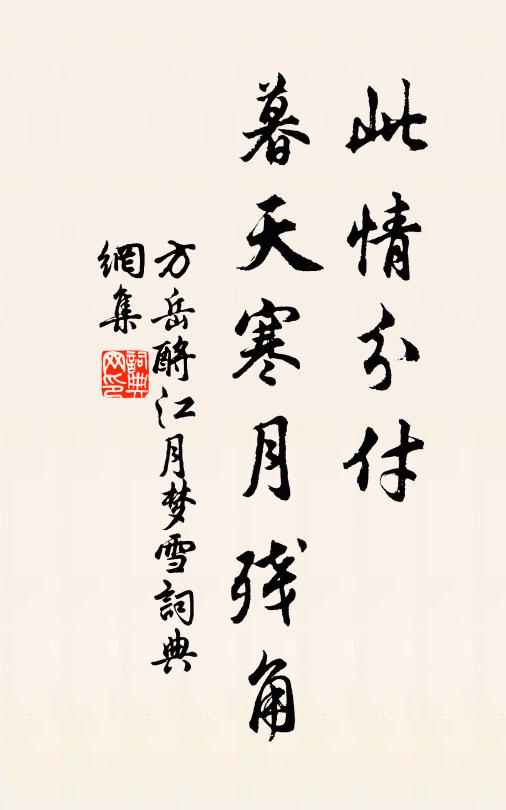 此情分付
暮天寒月残角
方岳酹江月梦雪詞典
網集
詞典
网印